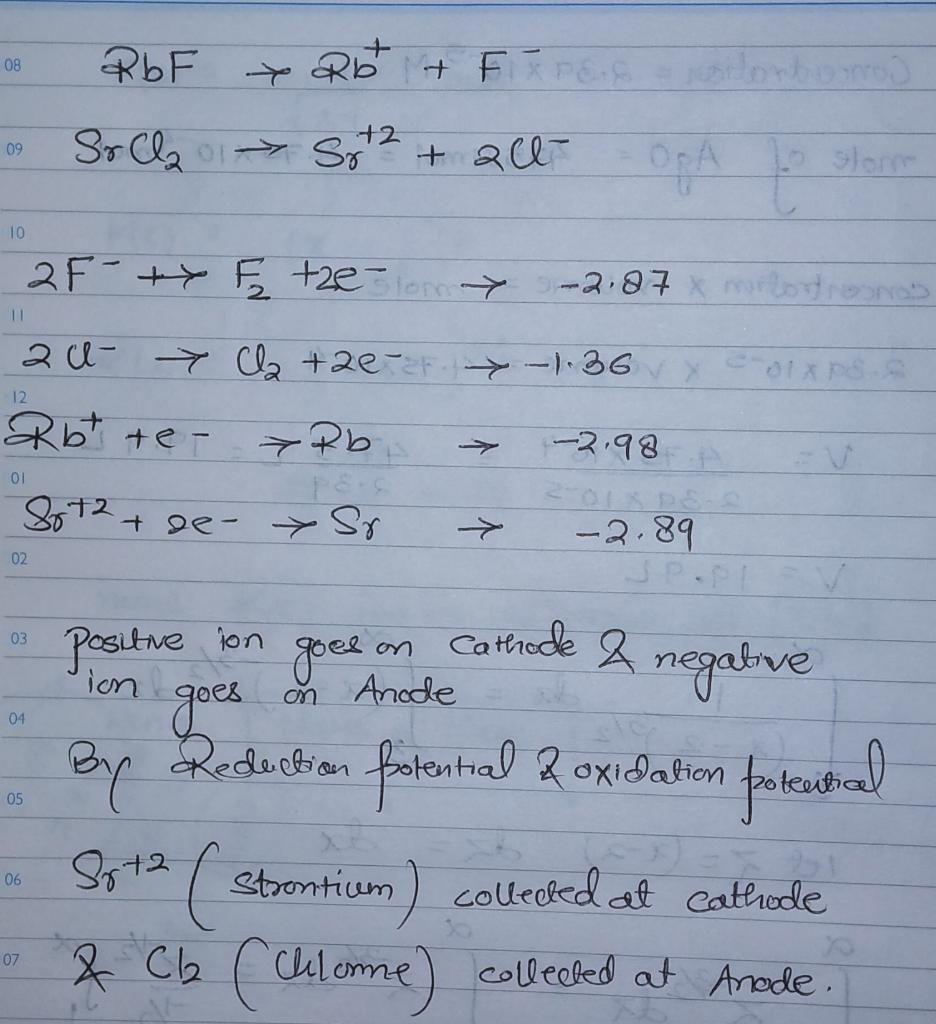 08 RbF → Rb⁺ + F⁻
09 SrCl₂ → Sr⁺² + 2Cl⁻
10
2F⁻ → F₂ +2e⁻ → -2.87
11
2Cl⁻ → Cl₂ +2e⁻ → -1.36
12
Rb⁺ +e⁻ → Rb → -2.98
01
Sr⁺² + 2e⁻ → Sr → -2.89
02
03 Positive ion goes on Cathode & negative
ion goes on Anode
04
By Reduction potential & oxidation potential
05
06 Sr⁺² (Strontium) collected at cathode
07 & Cl₂ (Chlorine) collected at Anode.